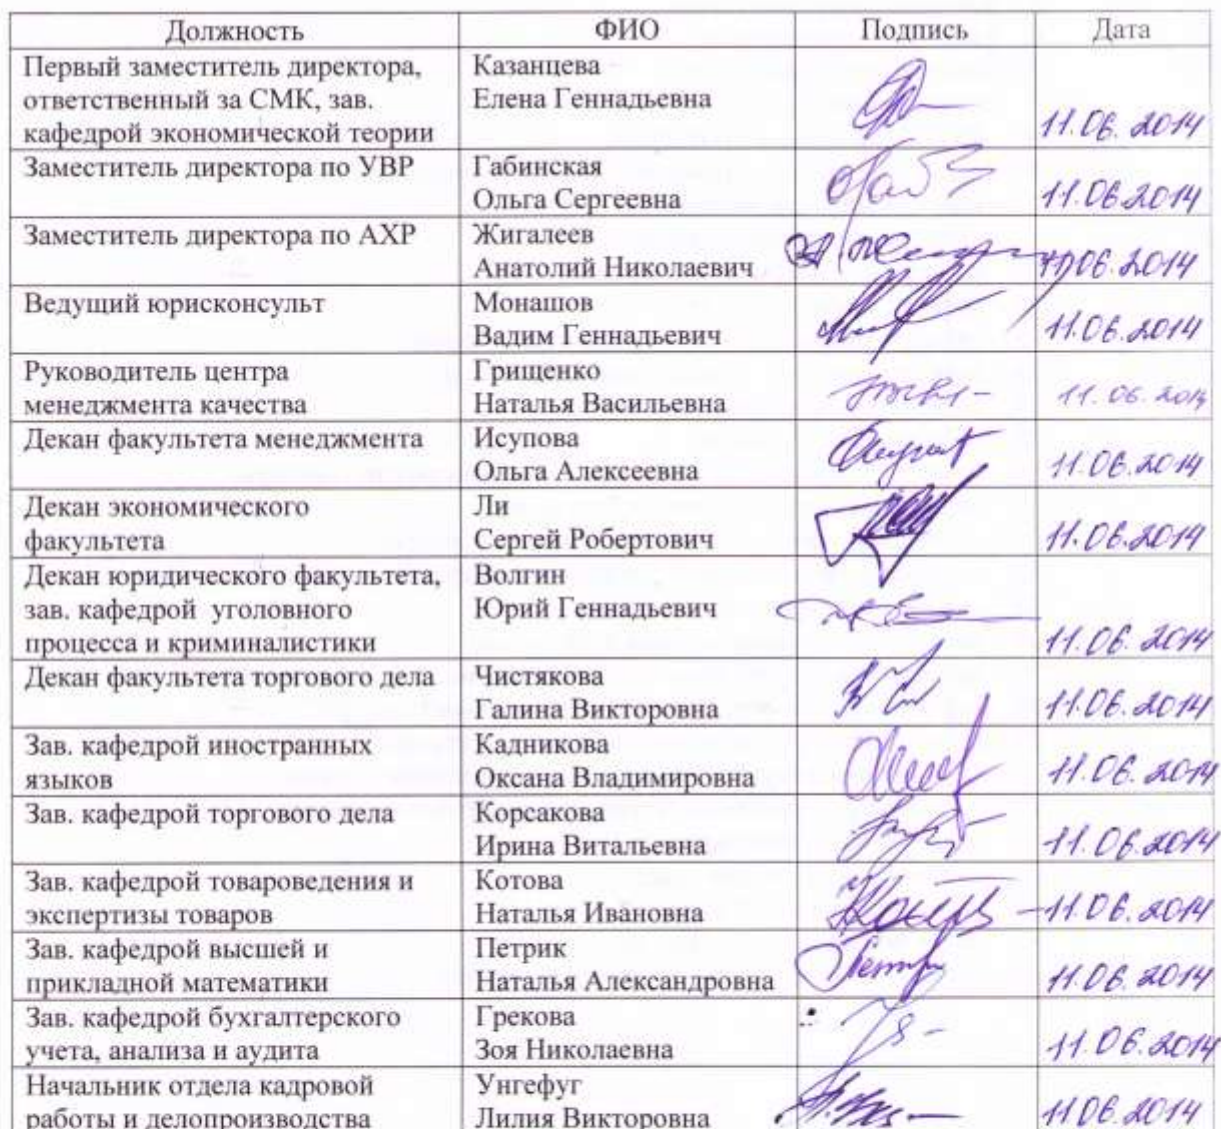 Должность ФИО Подпись Дата
Первый заместитель директора, Казанцева
ответственный за СМК, зав. Елена Геннадьевна
кафедрой экономической теории 11.06.2014
Заместитель директора по УВР Габинская
Ольга Сергеевна 11.06.2014
Заместитель директора по АХР Жигалеев
Анатолий Николаевич 11.06.2014
Ведущий юрисконсульт Монашов
Вадим Геннадьевич 11.06.2014
Руководитель центра Грищенко
менеджмента качества Наталья Васильевна 11.06.2014
Декан факультета менеджмента Исупова
Ольга Алексеевна 11.06.2014
Декан экономического Ли
факультета Сергей Робертович 11.06.2014
Декан юридического факультета, Волгин
зав. кафедрой уголовного Юрий Геннадьевич
процесса и криминалистики 11.06.2014
Декан факультета торгового дела Чистякова
Галина Викторовна 11.06.2014
Зав. кафедрой иностранных Кадникова
языков Оксана Владимировна 11.06.2014
Зав. кафедрой торгового дела Корсакова
Ирина Витальевна 11.06.2014
Зав. кафедрой товароведения и Котова
экспертизы товаров Наталья Ивановна 11.06.2014
Зав. кафедрой высшей и Петрик
прикладной математики Наталья Александровна 11.06.2014
Зав. кафедрой бухгалтерского Грекова
учета, анализа и аудита Зоя Николаевна 11.06.2014
Начальник отдела кадровой Унгефуг
работы и делопроизводства Лилия Викторовна 11.06.2014